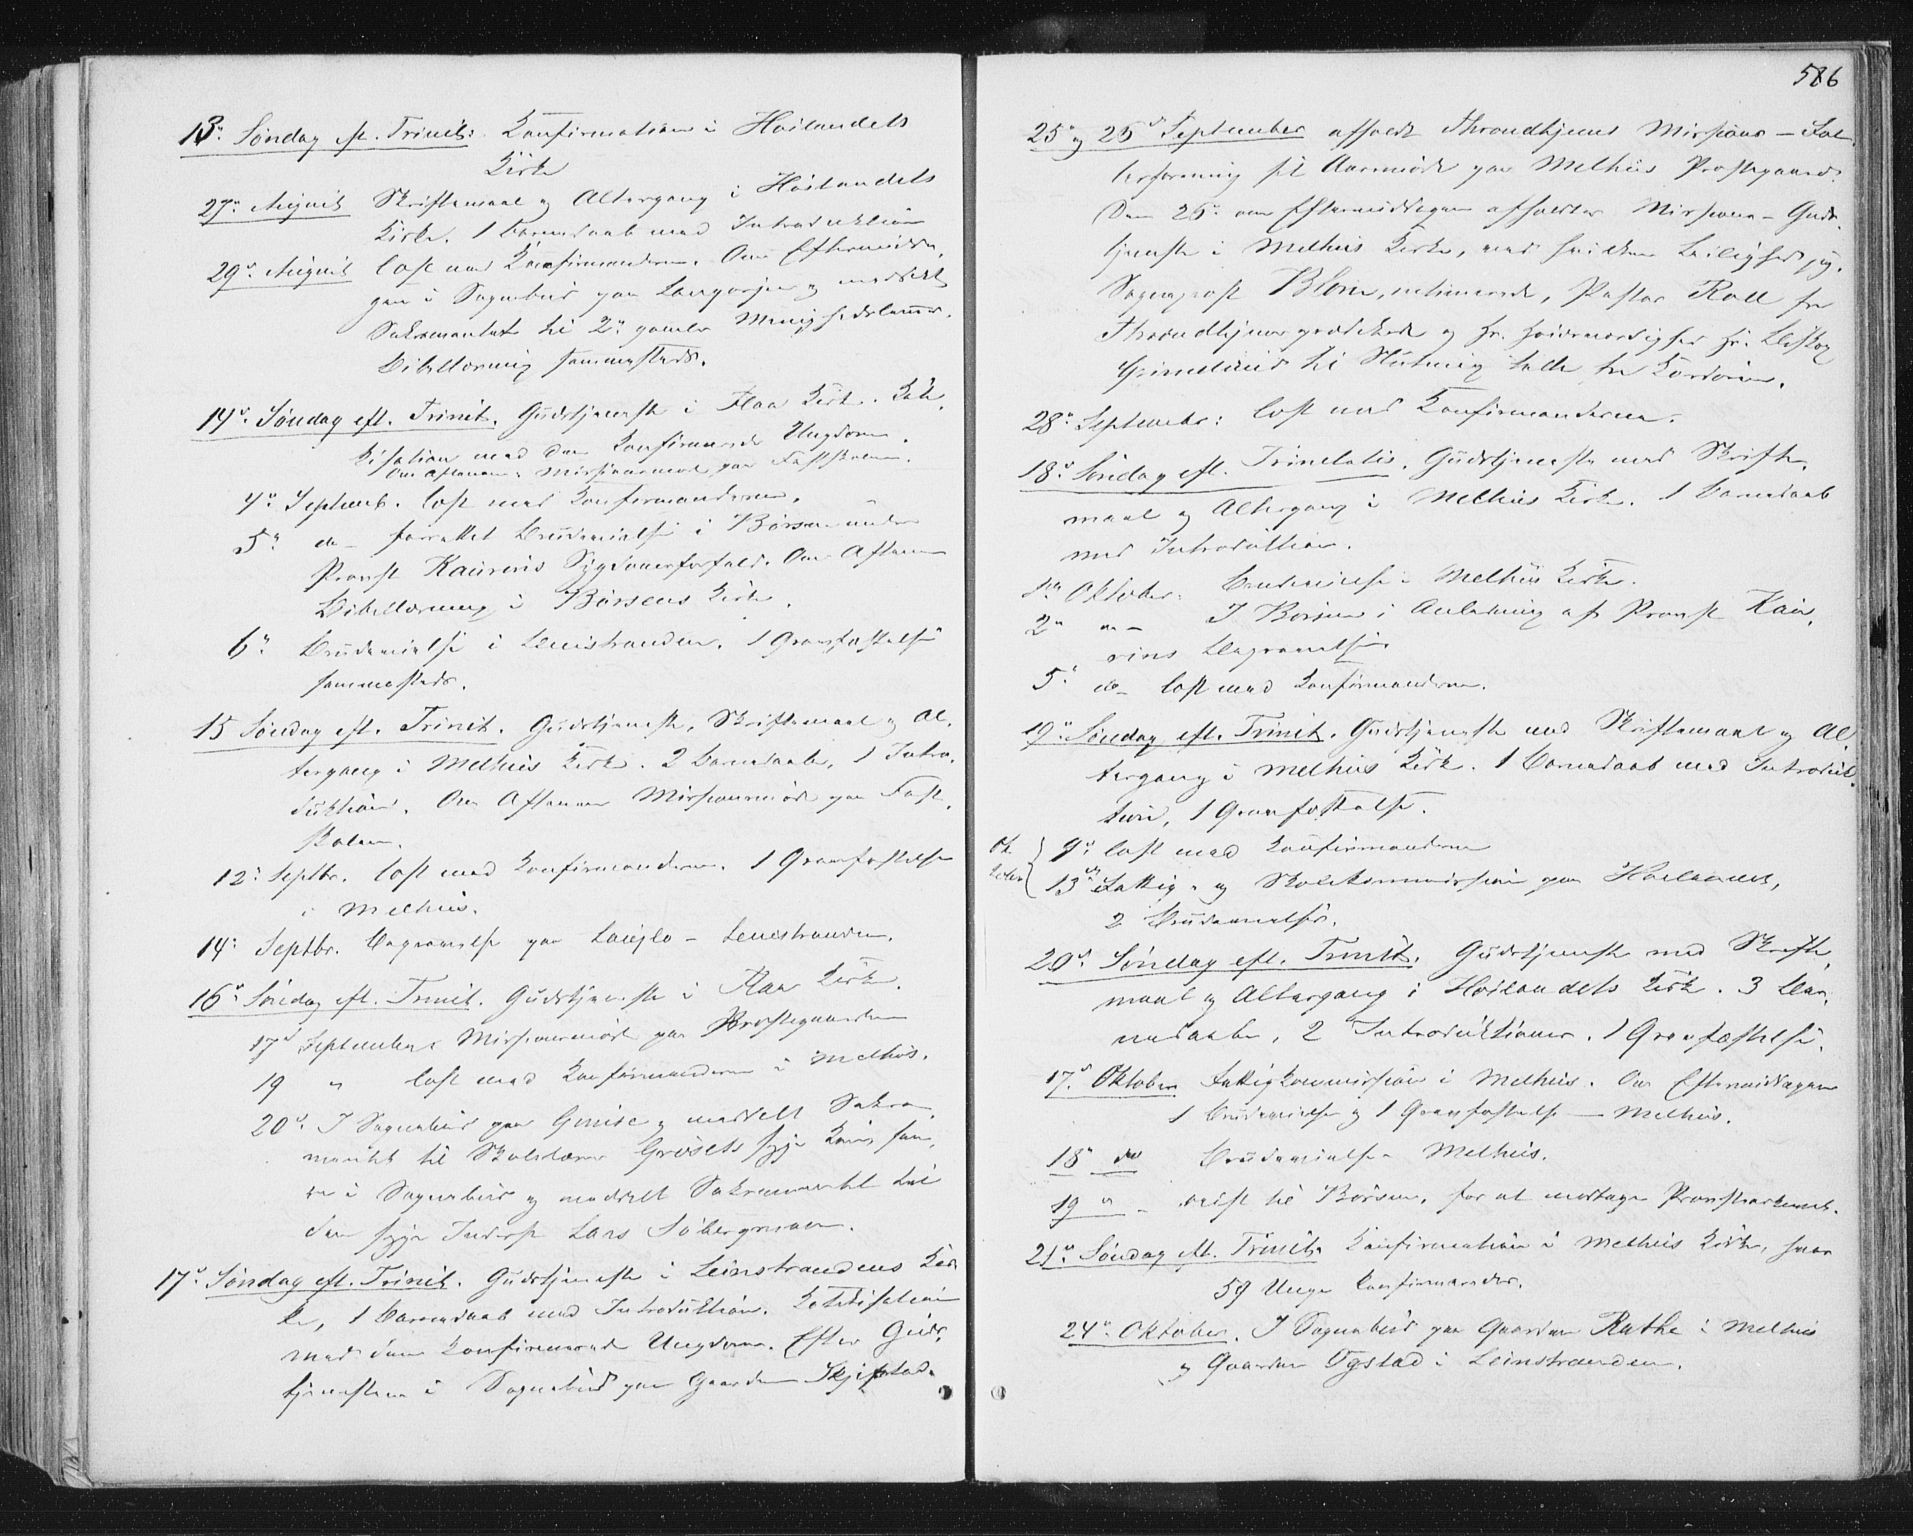 13de Søndag eft. Trinit: Konfirmation i Høilandets
Kirke
27de August Skriftemaal og Altergang i Høilandets
Kirke. 1 Barnedaab med Introduktion
29de August læst med Konfirmanderne. Om Eftermidda,
gen i Sognebud paa Langørgen og meddelt
Sakramentet til 2de gamle Menighedslemmer.
Bibellæsning sammesteds.
14de Søndag eft. Trinit. Gudstjeneste i Flaa Kirke. Kate,
kisation med den konfirmerede Ungdom.
Om Aftenen Missionsmøde paa Fastskolen.
4de Septemb. læst med Konfirmanderne.
5te do forrettet Brudevielse i Børsen under
Provst Kaurins Sygdomsforfald. Om Aftenen
Bibellæsning i Børsens Kirke.
6te Brudevielse i Leinstranden. 1 Gravfæstelse
sammesteds.
15 Søndag eft. Trinit. Gudstjeneste, Skriftemaal og Al,
tergang i Melhus Kirke. 2 Barnedaab, 1 Intro,
duktion. Om Aftenen Missionsmøde paa Fast,
skolen.
12te Septbr. læst med Konfirmanderne. 1 Gravfæstelse
i Melhus.
14de Septbr. Begravelse paa Leinstranden.
16de Søndag eft. Trinit. Gudstjeneste i Flaa Kirke.
17de September Missionsmøde paa Prostegaarden
19 " læst med Konfirmanderne i Melhus.
20de I Sognebud paa Gimse og meddelt Sakra,
mentet til Skolelærer Grøsets syge Kone, si,
den i Sognebud og meddelt Sakramentet til
den syge Inderst Lars Søbergsmoen.
17de Søndag eft. Trinit. Gudstjeneste i Leinstrandens Kir,
ke, 1 Barnedaab med Introduktion. Katekisation
med den konfirmerede Ungdom. Efter Guds,
tjenesten i Sognebud paa Gaarden Skjefstad.
586
25de og 26de September afholdt Throndhjems Missions-Fæl,
lesforening sit Aarsmøde paa Melhus Prostegaard.
Den 26de om Eftermiddagen afholdtes Missions-Guds,
tjeneste i Melhus Kirke, ved hvilken Leilighed jeg,
Sognepræst Blom, messerede, Pastor Roll fra
Throndhjem prædikede og Hs. Høiærværdighed Hr. Biskop
Grimelund til Slutning talte fra Kordøren.
28de Septembr: læst med Konfirmanderne.
18de Søndag eft. Trinitatis. Gudstjeneste med Skrifte,
maal og Altergang i Melhus Kirke. 1 Barnedaab
med Introduktion.
1ste Oktober: Brudevielse i Melhus Kirke.
2den do I Børsen i Anledning af Provst Kau,
rins Begravelse.
5te do læst med Konfirmanderne.
19de Søndag eft. Trinit. Gudstjeneste med Skriftemaal og Al,
tergang i Melhus Kirke. 1 Barnedaab med Introduk,
tion, 1 Gravfæstelse.
Ok,
tober
9de læst med Konfirmanderne
13de Fattig- og Skolekommission paa Høilandet,
2 Brudevielser.
20de Søndag eft. Trinit. Gudstjeneste med Skrifte,
maal og Altergang i Høilandets Kirke. 3 Bar,
nedaab, 2 Introduktioner. 1 Gravfæstelse.
17de Oktober Fattigkommission i Melhus. Om Eftermiddagen
1 Brudevielse og 1 Gravfæstelse – Melhus.
18de do Brudevielse – Melhus.
19 " – reist til Børsen, for at modtage Provstiarkivet.
21de Søndag eft. Trinit. Konfirmation i Melhus Kirke, hvor
59 Unge konfirmeredes.
24de Oktober. I Sognebud paa Gaarden Rathe i Melhus
og Gaarden Ogstad i Leinstranden.